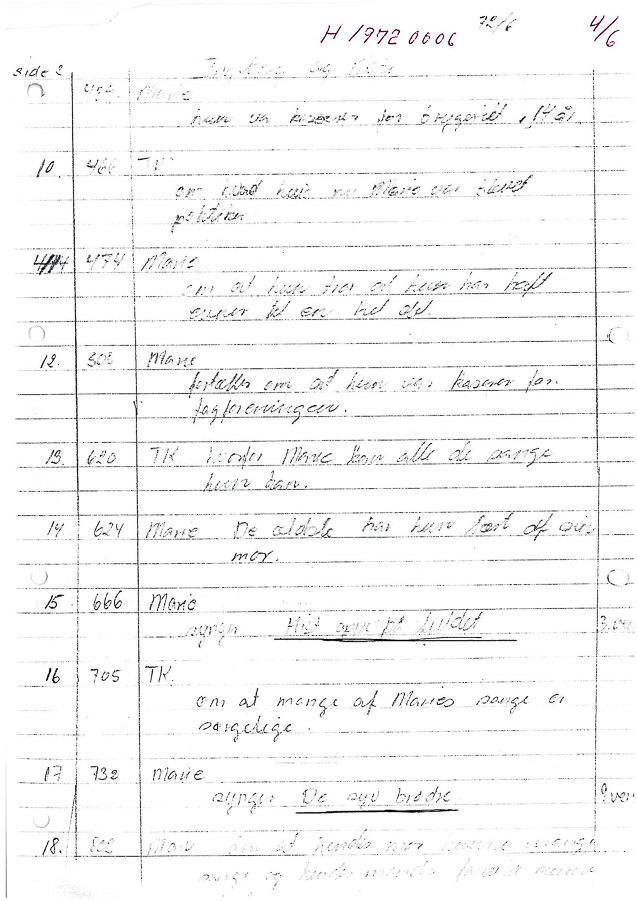 H 1972 0606 72/6 4/6
side 2 og
Marie
hun var kasserer for bryggeriet,
10. 466 TK
om hvad hun nu Marie var blevet
politiker
474 Marie
om at hun tror at hun har haft
evner til en hel del.
12. Marie
fortæller om at hun var kaserer for
fagforeningen.
13. 620 TK hvorfor Marie kan alle de sange
hun kan.
14 624 Marie De ældste har hun lært af sin
mor.
15 666 Marie
synger Hist oppe på fjeldet 3. ver
16 705 TK.
om at mange af Maries sange er
sørgelige.
17 732 Marie
synger De syv brødre ver
18. 802 Marie om at hendes mor kunne mange
sange og hendes mands familie kunne